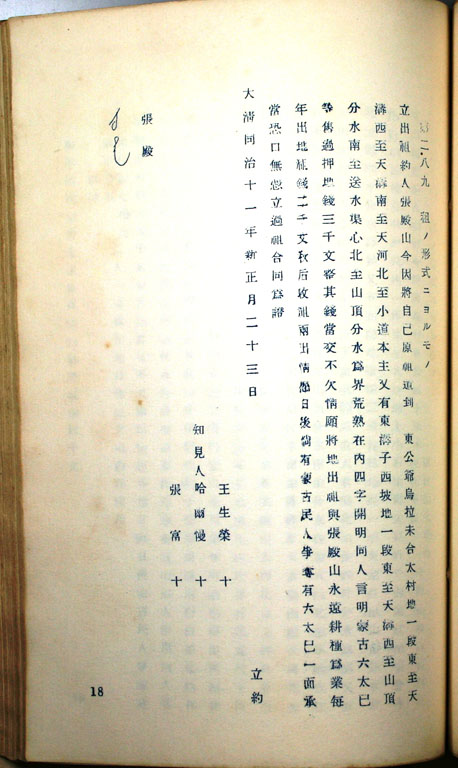 二・八九 租ノ形式ニヨルモノ
立出租約人張殿山今因將自己原租到 東公爺烏拉未合太村地一段東至天
溝西至天溝南至天河北至小道本主又有東溝子西坡地一段東至天溝西至山頂
分水南至送水渠心北至山頂分水為界荒熟在内四字開明同人言明蒙古六太已
等售過押地錢三千文整其錢當交不欠情願將地出租與張殿山永遠耕種為業每
年出地租錢二千文秋后收租兩出情愿日後倘有蒙古民人爭奪有六太巳一面承
當恐口無憑立過租合同為證
大清同治十一年新正月二十三日
立約
王生榮 十
知見人哈爾慢 十
張富 十
張殿
18